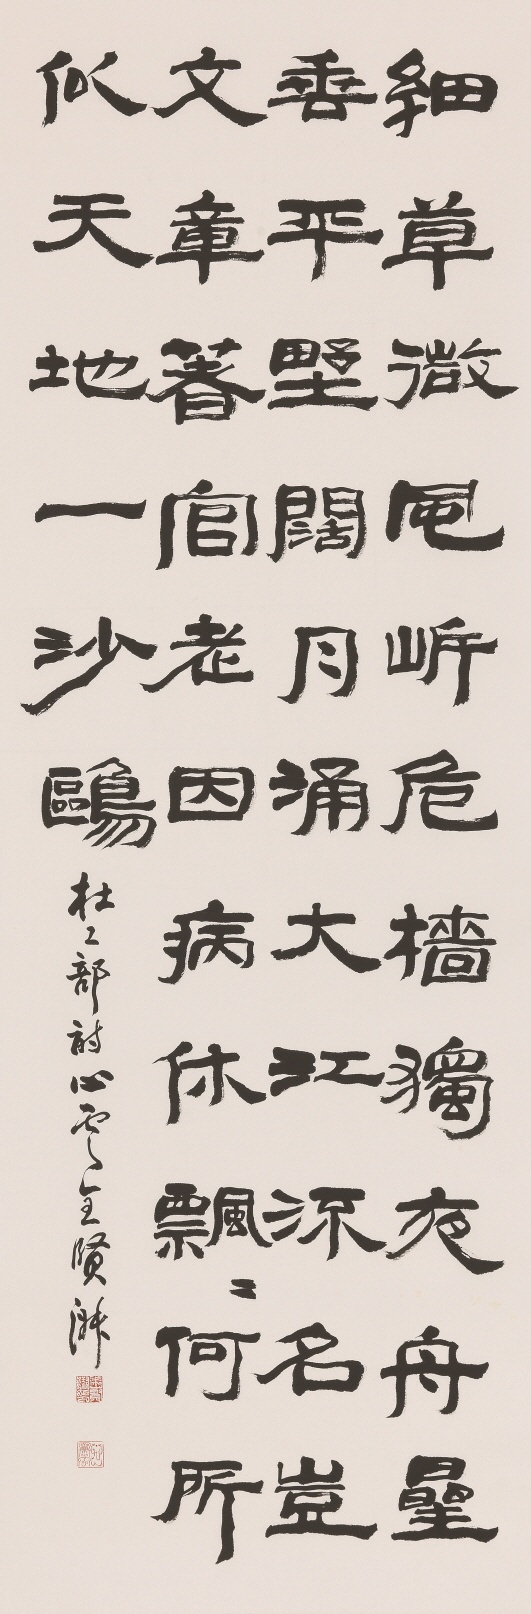 細草微風岸危檣獨夜舟曐
垂平墅闊月涌大江流名豈
文章著官老因病休飄〻何所
似天地一沙鷗
杜工部詩心雲全賢